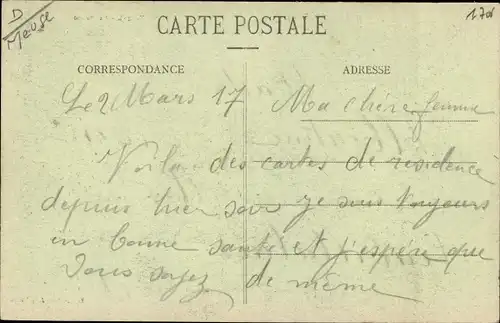 D
Meuse
170
CARTE POSTALE
CORRESPONDANCE
ADRESSE
Le 2 Mars 17 Ma chère femme
Voila des cartes de residence
depuis hier soir je suis toujours
en bonne sante et j'espère que
vous soyez de même